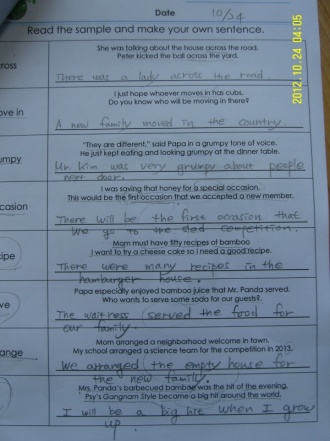 Date 10/24
2012.10.24 04:05
Read the sample and make your own sentence.
She was talking about the house across the road.
Peter kicked the ball across the yard.
ross
There was a lady across the road.
I just hope whoever moves in has cubs.
Do you know who will be moving in there?
ove in
A new family moved in the country.
"They are different," said Papa in a grumpy tone of voice.
He just kept eating and looking grumpy at the dinner table.
umpy
Mr. Kim was very grumpy about people
next door.
I was saving that honey for a special occasion.
This would be the first occasion that we accepted a new member.
casion
There will be the first occasion that
we go to the sled competition.
Mom must have fifty recipes of bamboo
I want to try a cheese cake so I need a good recipe.
cipe
There were many recipes in the
hamburger house.
Papa especially enjoyed bamboo juice that Mr. Panda served.
Who wants to serve some soda for our guests?.
ve
The waitress served the food for
our family.
Mom arranged a neighborhood welcome in town.
My school arranged a science team for the competition in 2013.
ange
We arranged the empty house for
the new family.
Mrs. Panda's barbecued bamboo was the hit of the evening.
Psy's Gangnam Style became a big hit around the world.
I will be a big hit when I grow
up.